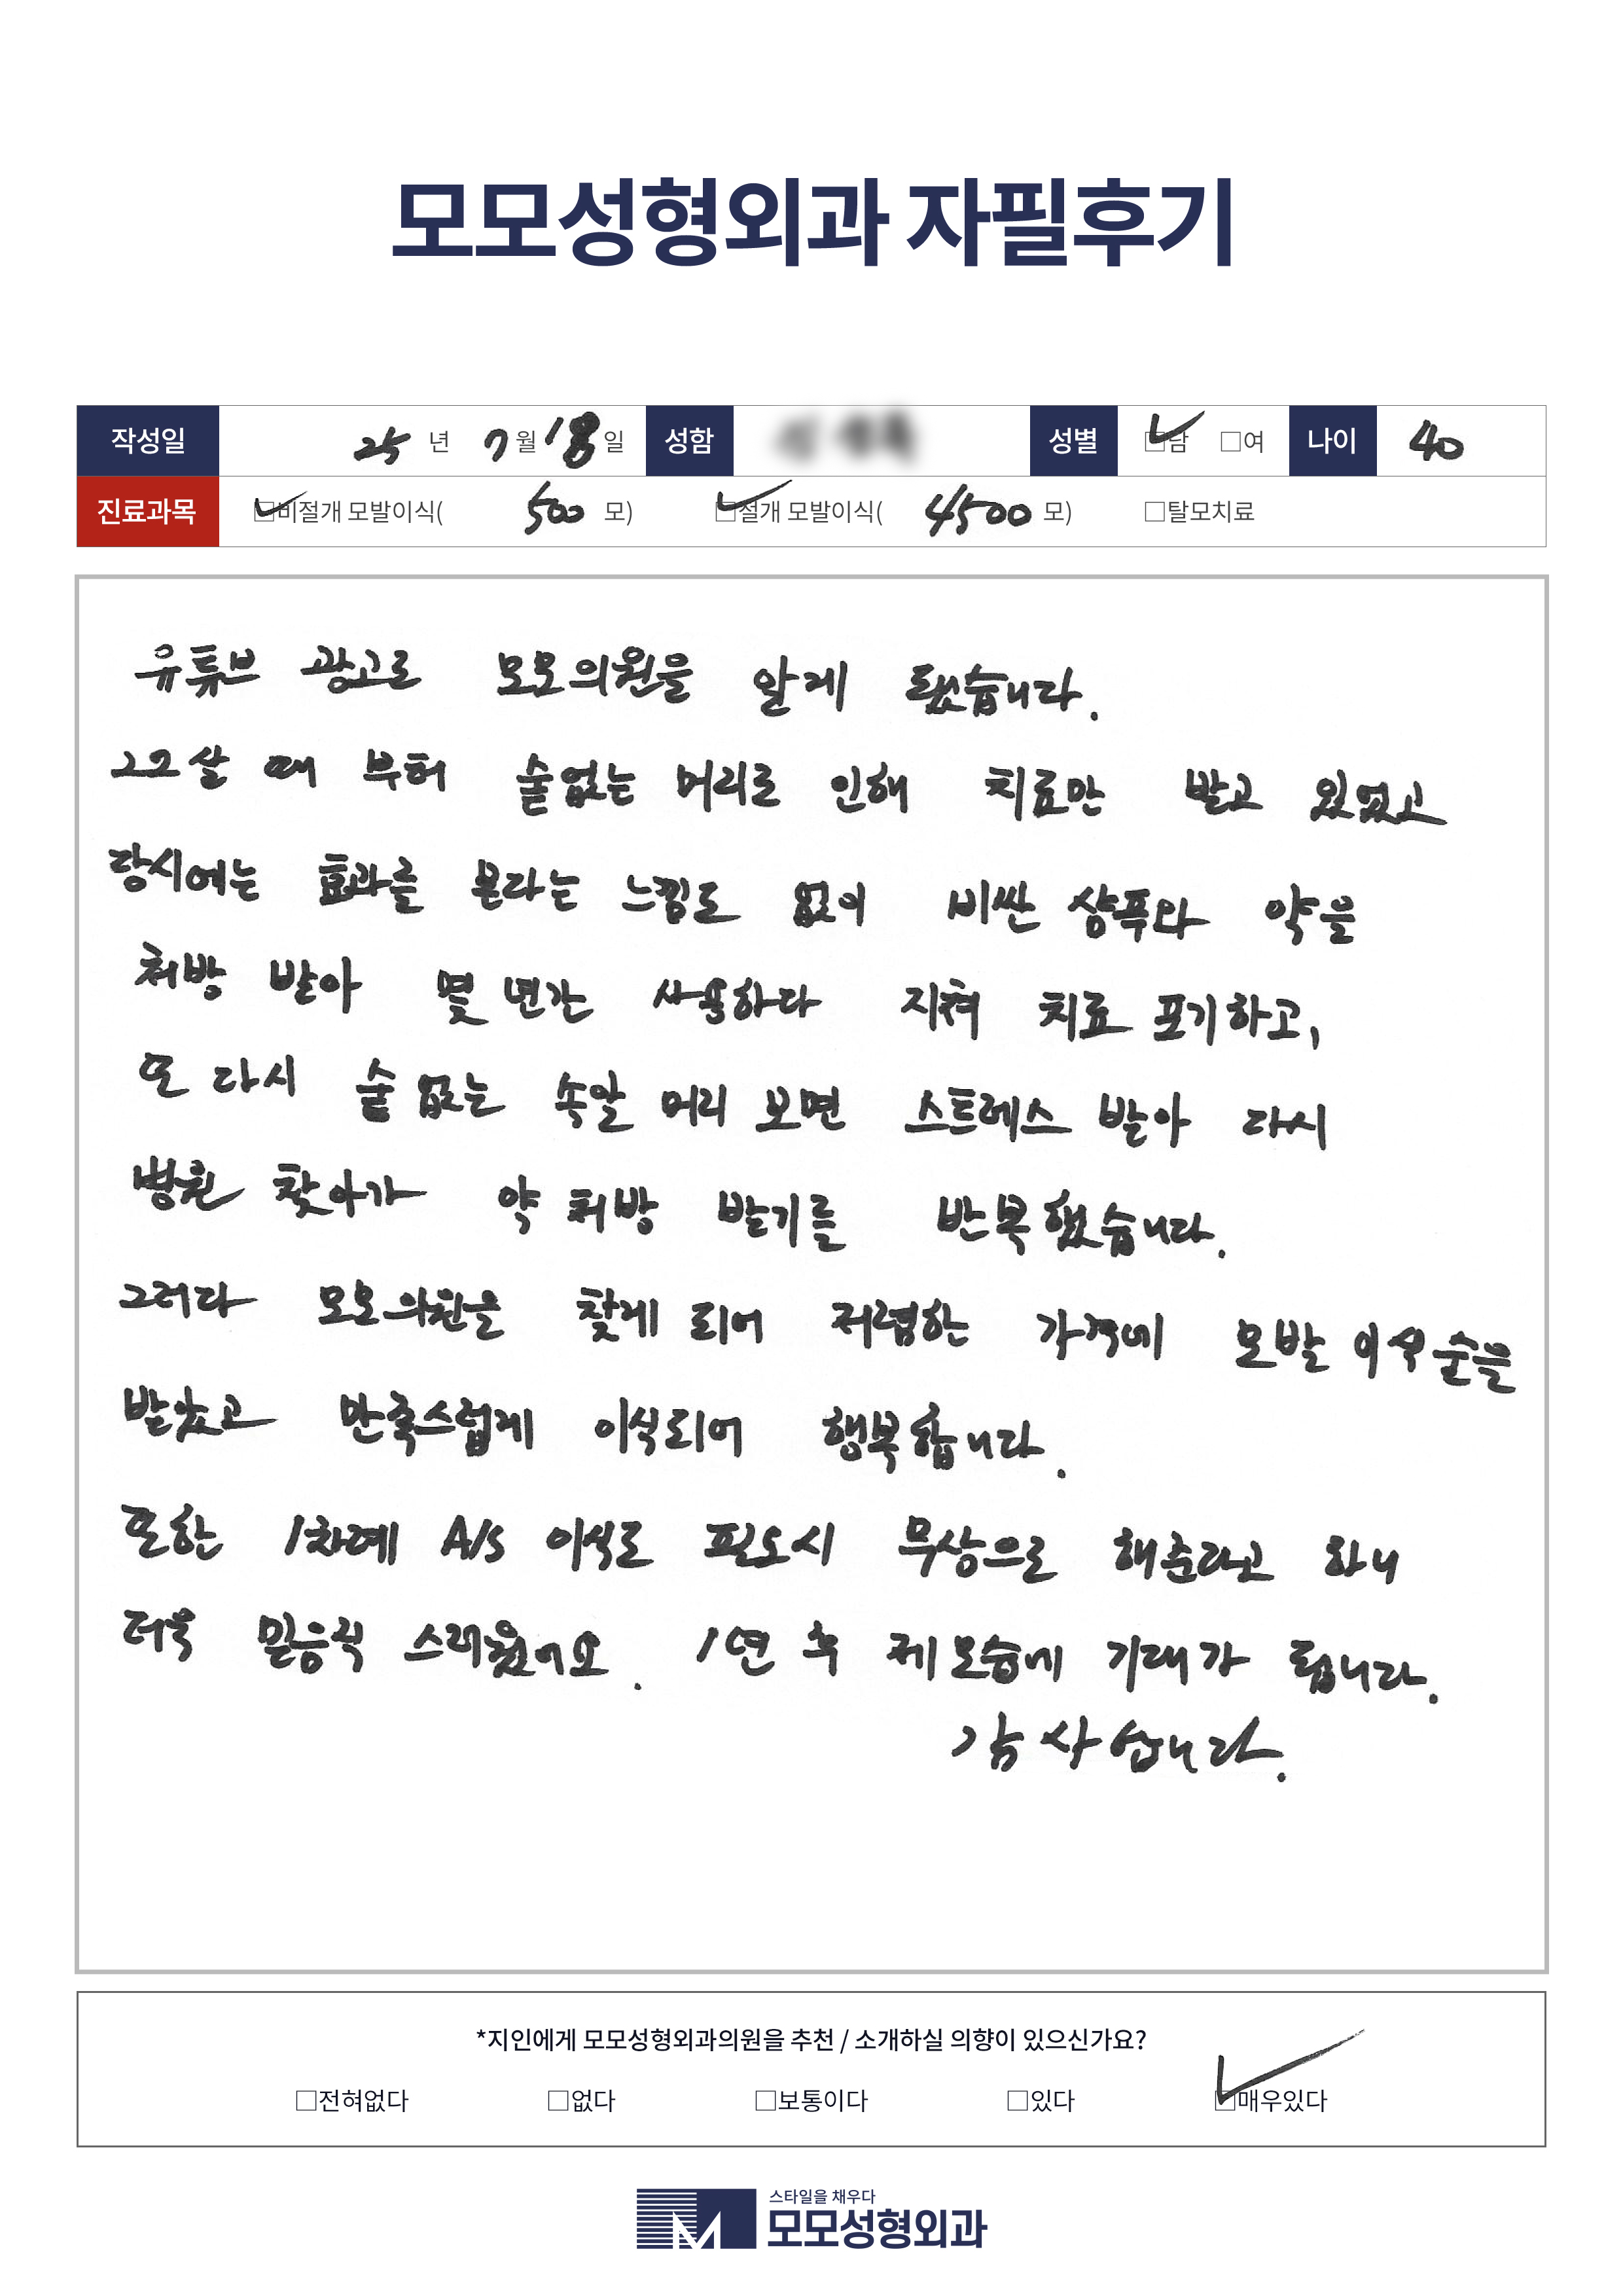 모모성형외과 자필후기
작성일 25 년 7 월 18 일 성함 성별 □남 □여 나이 40
진료과목 □비절개 모발이식( 500 모) □절개 모발이식( 4500 모) □탈모치료
유튜브 광고로 모모의원을 알게 됐습니다.
22살 때 부허 숱없는 머리로 인해 치료만 받고 있었고
당시에는 효과를 본다는 느낌도 없이 비싼 샴푸와 약을
처방 받아 몇 년간 사용하다 지쳐 치료 포기하고,
또 다시 숱 없는 속알 머리 보면 스트레스 받아 다시
병원 찾아가 약 처방 받기를 반복했습니다.
그러다 모모의원을 찾게 되어 저렴한 가격에 모발 이식술을
받았고 만족스럽게 이식되어 행복합니다.
또한 1차례 A/S 이식도 필요시 무상으로 해준다고 하니
더욱 믿음직 스러웠어요. 1년 후 제 모습에 기대가 됩니다.
감사합니다.
*지인에게 모모성형외과의원을 추천 / 소개하실 의향이 있으신가요?
□전혀없다 □없다 □보통이다 □있다 □매우있다
스타일을 채우다
모모성형외과